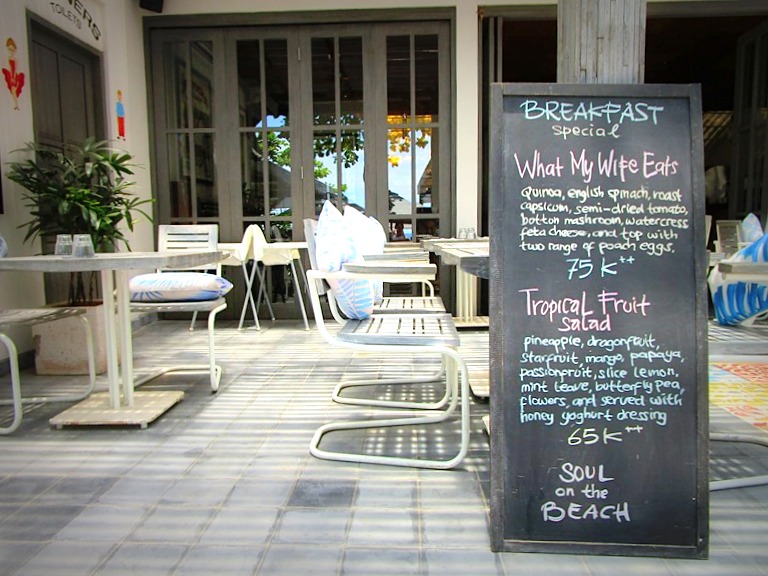 NERS
TOILETS
BREAKFAST
special
What My Wife Eats
quinoa, english spinach, roast
capsicum, semi-dried tomato,
botton mashroom, watercress
feta cheese, and top with
two range of poach eggs.
75K++
Tropical Fruit
Salad
pineapple, dragonfruit,
starfruit, mango, papaya,
passionfruit, slice lemon,
mint leave, butterfly pea,
flowers, and served with
honey yoghurt dressing
65K++
SOUL
on the
BEACH